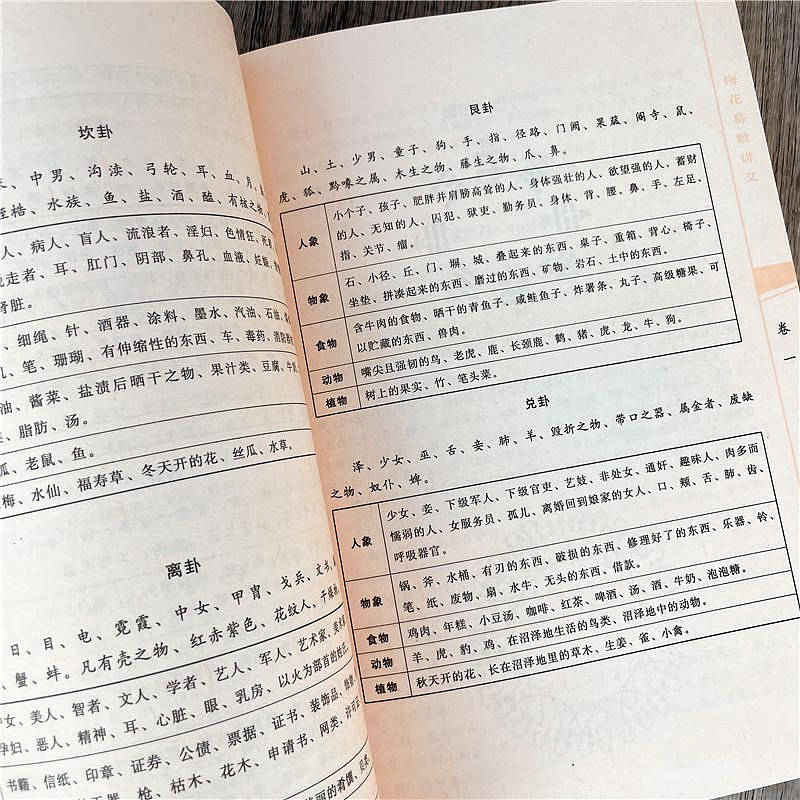 坎卦
中男、沟渎、弓轮、耳、血、月、
桎梏、水族、鱼、盐、酒、醢、有核之物、
人、病人、盲人、流浪者、淫妇、色情狂、
逃走者、耳、肛门、阴部、鼻孔、血液、妊娠、
肾脏。
、细绳、针、酒器、涂料、墨水、汽油、石油、
几、笔、珊瑚、有伸缩性的东西、车、毒药、消防
油、酱菜、盐渍后晒干之物、果汁类、豆腐、牛奶
、脂肪、汤。
狐、老鼠、鱼。
梅、水仙、福寿草、冬天开的花、丝瓜、水草。
离卦
日、目、电、霓霞、中女、甲胄、戈兵、文书、
、蟹、蚌。凡有壳之物、红赤紫色、花纹人、干燥
中女、美人、智者、文人、学者、艺人、军人、艺术家、美术
孕妇、恶人、精神、耳、心脏、眼、乳房、以火为部首的姓氏
书籍、信纸、印章、证券、公债、票据、证书、装饰品、
器、枪、枯木、花木、申请书、网类、许可
丽的肴馔、贝类
梅花易数讲义
卷一
艮卦
山、土、少男、童子、狗、手、指、径路、门阙、果蓏、阍寺、鼠、
虎、狐、黔喙之属、木生之物、藤生之物、爪、鼻。
人象 小个子、孩子、肥胖并肩膀高耸的人、身体强壮的人、欲望强的人、蓄财
的人、无知的人、囚犯、狱吏、勤务员、身体、背、腰、鼻、手、左足、
指、关节、瘤。
物象 石、小径、丘、门、塀、城、叠起来的东西、桌子、重箱、背心、椅子、
坐垫、拼凑起来的东西、磨过的东西、矿物、岩石、土中的东西。
食物 含牛肉的食物、晒干的青鱼子、咸鲑鱼子、炸薯条、丸子、高级糖果、可
以贮藏的东西、兽肉。
动物 嘴尖且强韧的鸟、老虎、鹿、长颈鹿、鹤、猪、虎、龙、牛、狗。
植物 树上的果实、竹、笔头菜。
兑卦
泽、少女、巫、舌、妾、肺、羊、毁折之物、带口之器、属金者、废缺
之物、奴仆、婢。
人象 少女、妾、下级军人、下级官吏、艺妓、非处女、通奸、趣味人、肉多而
懦弱的人、女服务员、孤儿、离婚回到娘家的女人、口、颊、舌、肺、齿、
呼吸器官。
物象 锅、斧、水桶、有刃的东西、破损的东西、修理好了的东西、乐器、铃、
笔、纸、废物、扇、水牛、无头的东西、借款。
食物 鸡肉、年糕、小豆汤、咖啡、红茶、啤酒、汤、酒、牛奶、泡泡糖。
动物 羊、虎、豹、鸡、在沼泽地生活的鸟类、沼泽地中的动物。
植物 秋天开的花、长在沼泽地里的草木、生姜、雀、小禽。